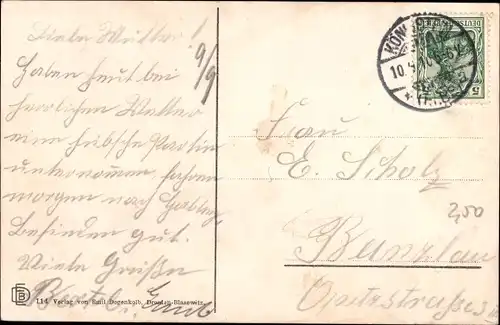 Liebe Mutter!
9/9
Haben heut bei
herrlichem Wetter
eine hübsche Partie
unternommen, fahren
morgen nach
Befinden gut.
Viele Grüße
114 Verlag von Emil Degenkolb, Dresden-Blasewitz.
DEUTSCHES REICH
5
KÖN
10.9.10
Frau
E. Scholz
2,50
Bunzlau